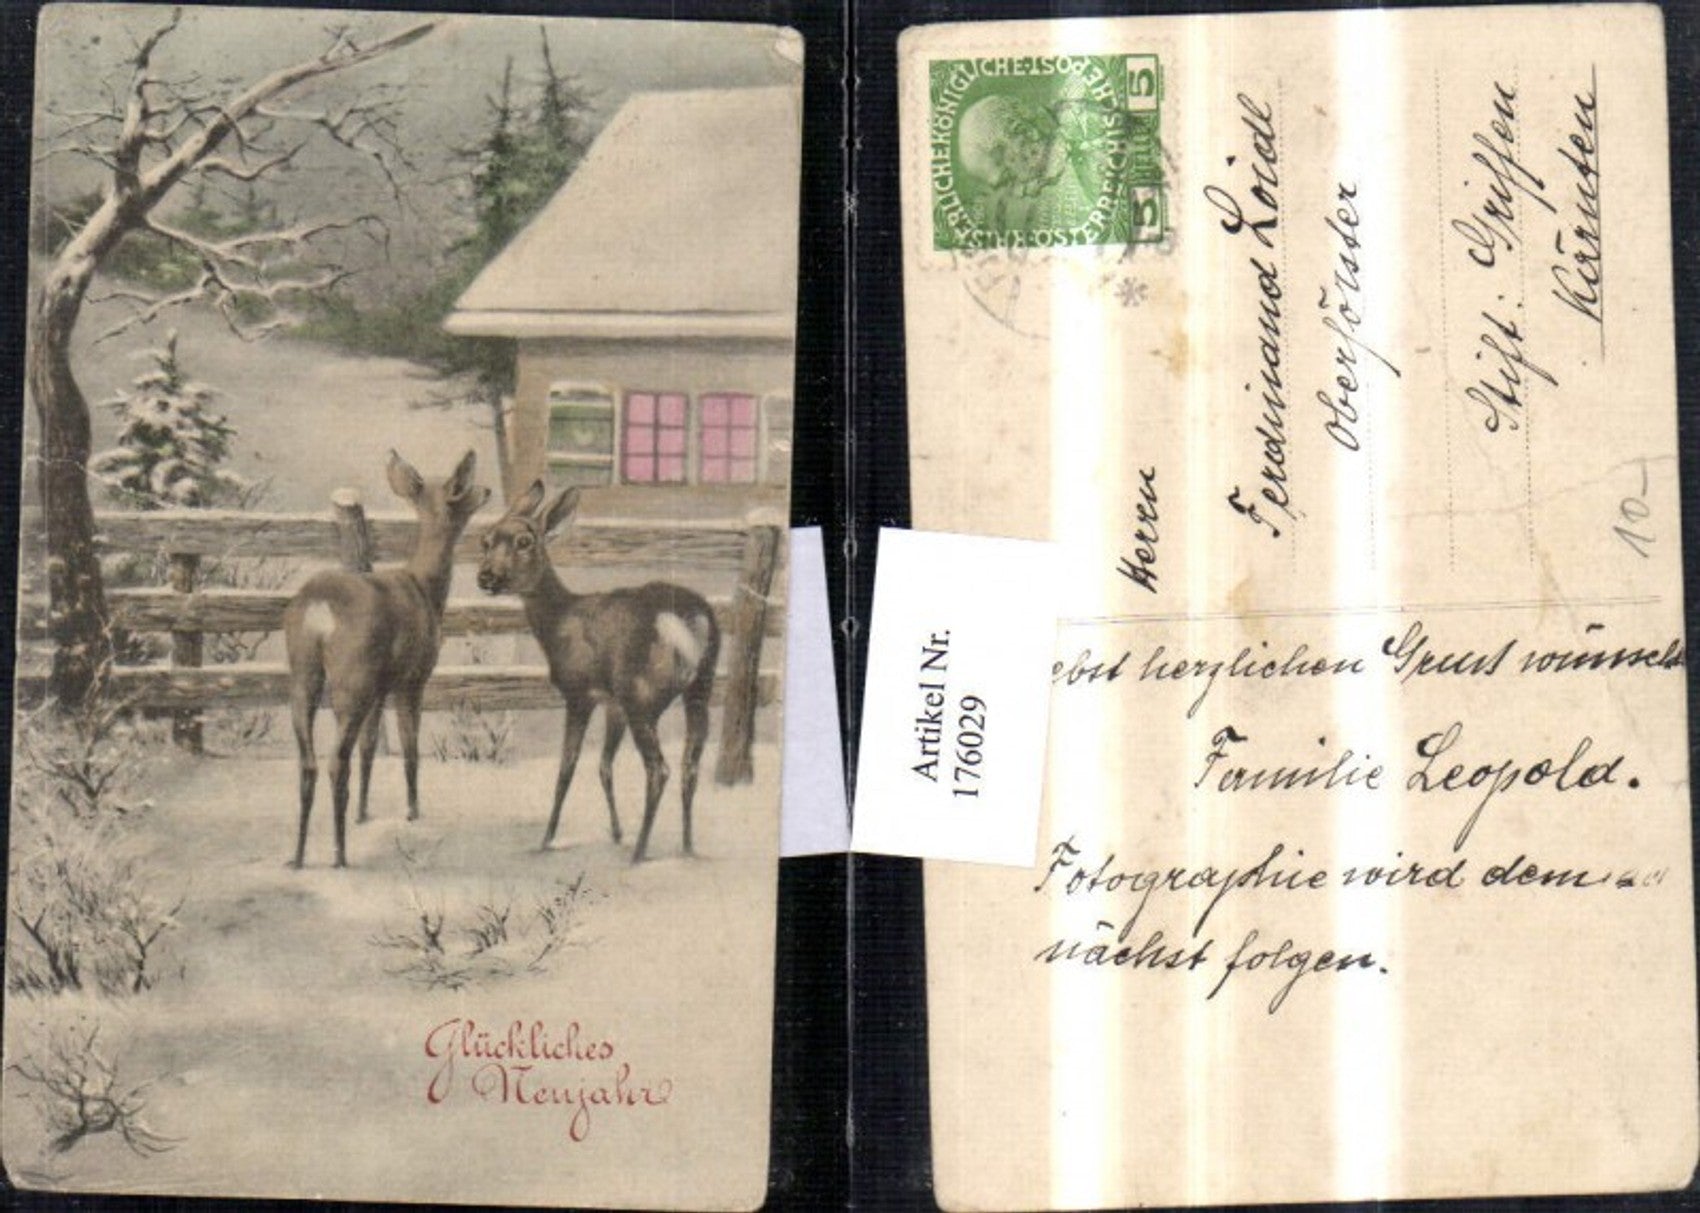 Glückliches
Neujahr
KAISERLICHE KÖNIGLICHE POST
ÖSTERREICHISCHE
5
5
Herren
Ferdinand Loidl
Oberförster
Stift: Griffen
Kärnten
10-
Artikel Nr.
176029
ebst herzlichen Gruss wünscht
Familie Leopold.
Fotographie wird dem
nächst folgen.